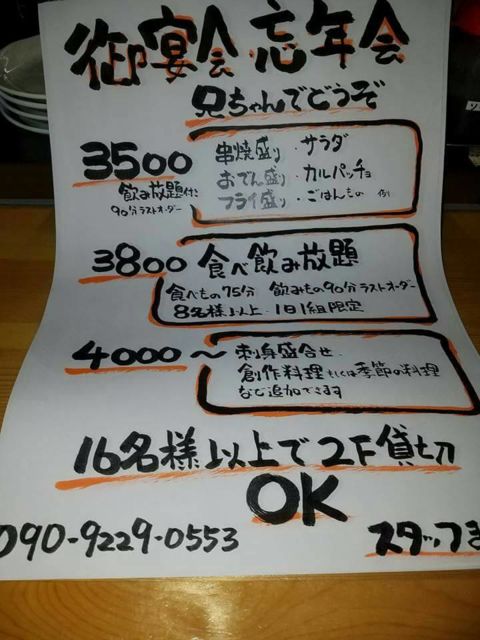 御宴会 忘年会
兄ちゃんでどうぞ
3500
飲み放題付
90分ラストオーダー
串焼盛り・サラダ
おでん盛り・カルパッチョ
フライ盛り・ごはんもの
3800 食べ飲み放題
食べもの75分 飲みもの90分ラストオーダー
8名様以上 1日1組限定
4000〜 刺身盛合せ
創作料理もしくは季節の料理
など追加できます
16名様以上で2F貸切
OK
090-9229-0553
スタッフま